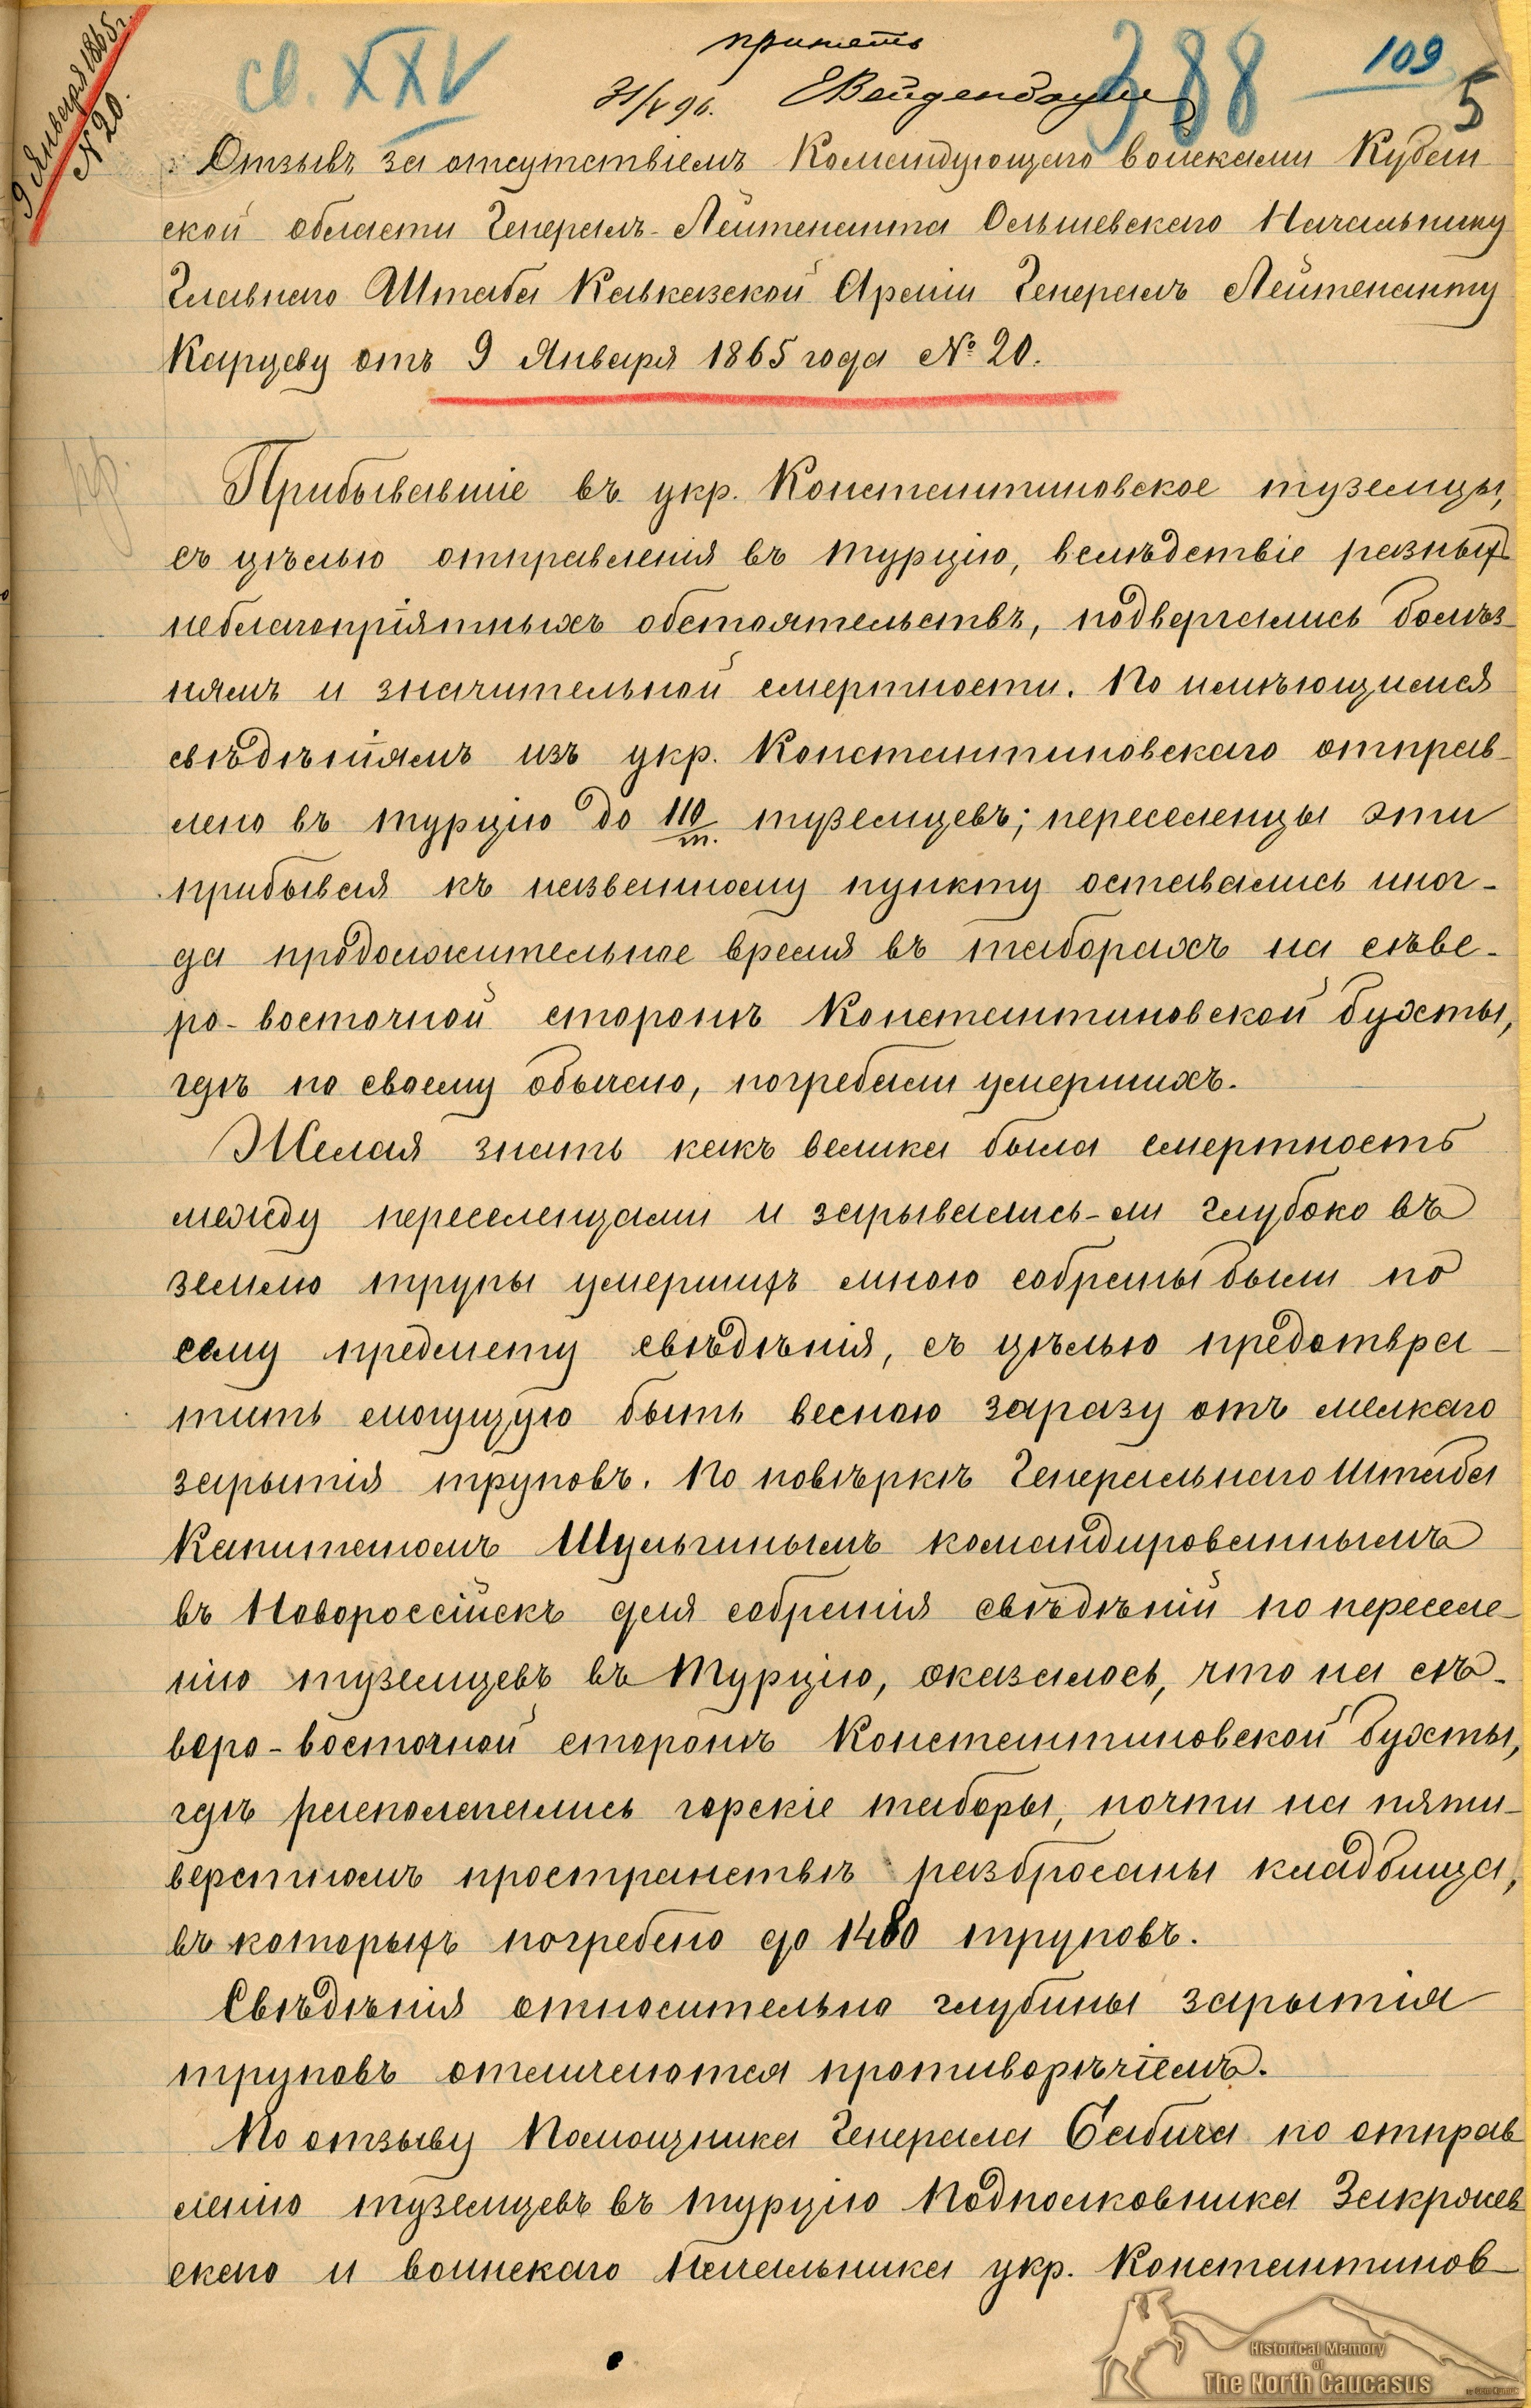 9 Января 1865 г.
№ 20.
св. XXV
принять
31/V 96.
ЕВейденбаумъ
388
109
5
Отзывъ за отсутствіемъ Командующаго войсками Кубан
ской области Генералъ-Лейтенанта Ольшевскаго Начальнику
Главнаго Штаба Кавказской Арміи Генералъ Лейтенанту
Карцеву отъ 9 Января 1865 года № 20.
пр.
Прибывавшіе въ укр. Константиновское туземцы,
съ цѣлью отправленія въ Турцію, вслѣдствіе разныхъ
неблагопріятныхъ обстоятельствъ, подвергались болѣз-
нямъ и значительной смертности. По имѣющимся
свѣдѣніямъ изъ укр. Константиновскаго отправ-
лено въ Турцію до 110/т. туземцевъ; переселенцы эти
прибывая къ названному пункту оставались иног-
да продолжительное время въ таборахъ на сѣве-
ро-восточной сторонѣ Константиновской бухты,
гдѣ по своему обычаю, погребали умершихъ.
Желая знать какъ велика была смертность
между переселенцами и зарывались-ли глубоко въ
землю трупы умершихъ мною собраны были по
сему предмету свѣдѣнія, съ цѣлью предотвра-
тить могущую быть весною заразу отъ мелкаго
зарытія труповъ. По повѣркѣ Генеральнаго Штаба
Капитаномъ Шульгинымъ командированнымъ
въ Новороссійскъ для собранія свѣдѣній по переселе-
нію туземцевъ въ Турцію, оказалось, что на сѣ-
веро-восточной сторонѣ Константиновской бухты,
гдѣ располагались горскіе таборы, почти на пяти-
верстномъ пространствѣ разбросаны кладбища,
въ которыхъ погребено до 1480 труповъ.
Свѣдѣнія относительно глубины зарытія
труповъ отличаются противорѣчіемъ.
По отзыву Помощника Генерала Бабича по отправ
ленію туземцевъ въ Турцію Подполковника Закрожев
скаго и воинскаго Начальника укр. Константинов-
Historical Memory
of
The North Caucasus